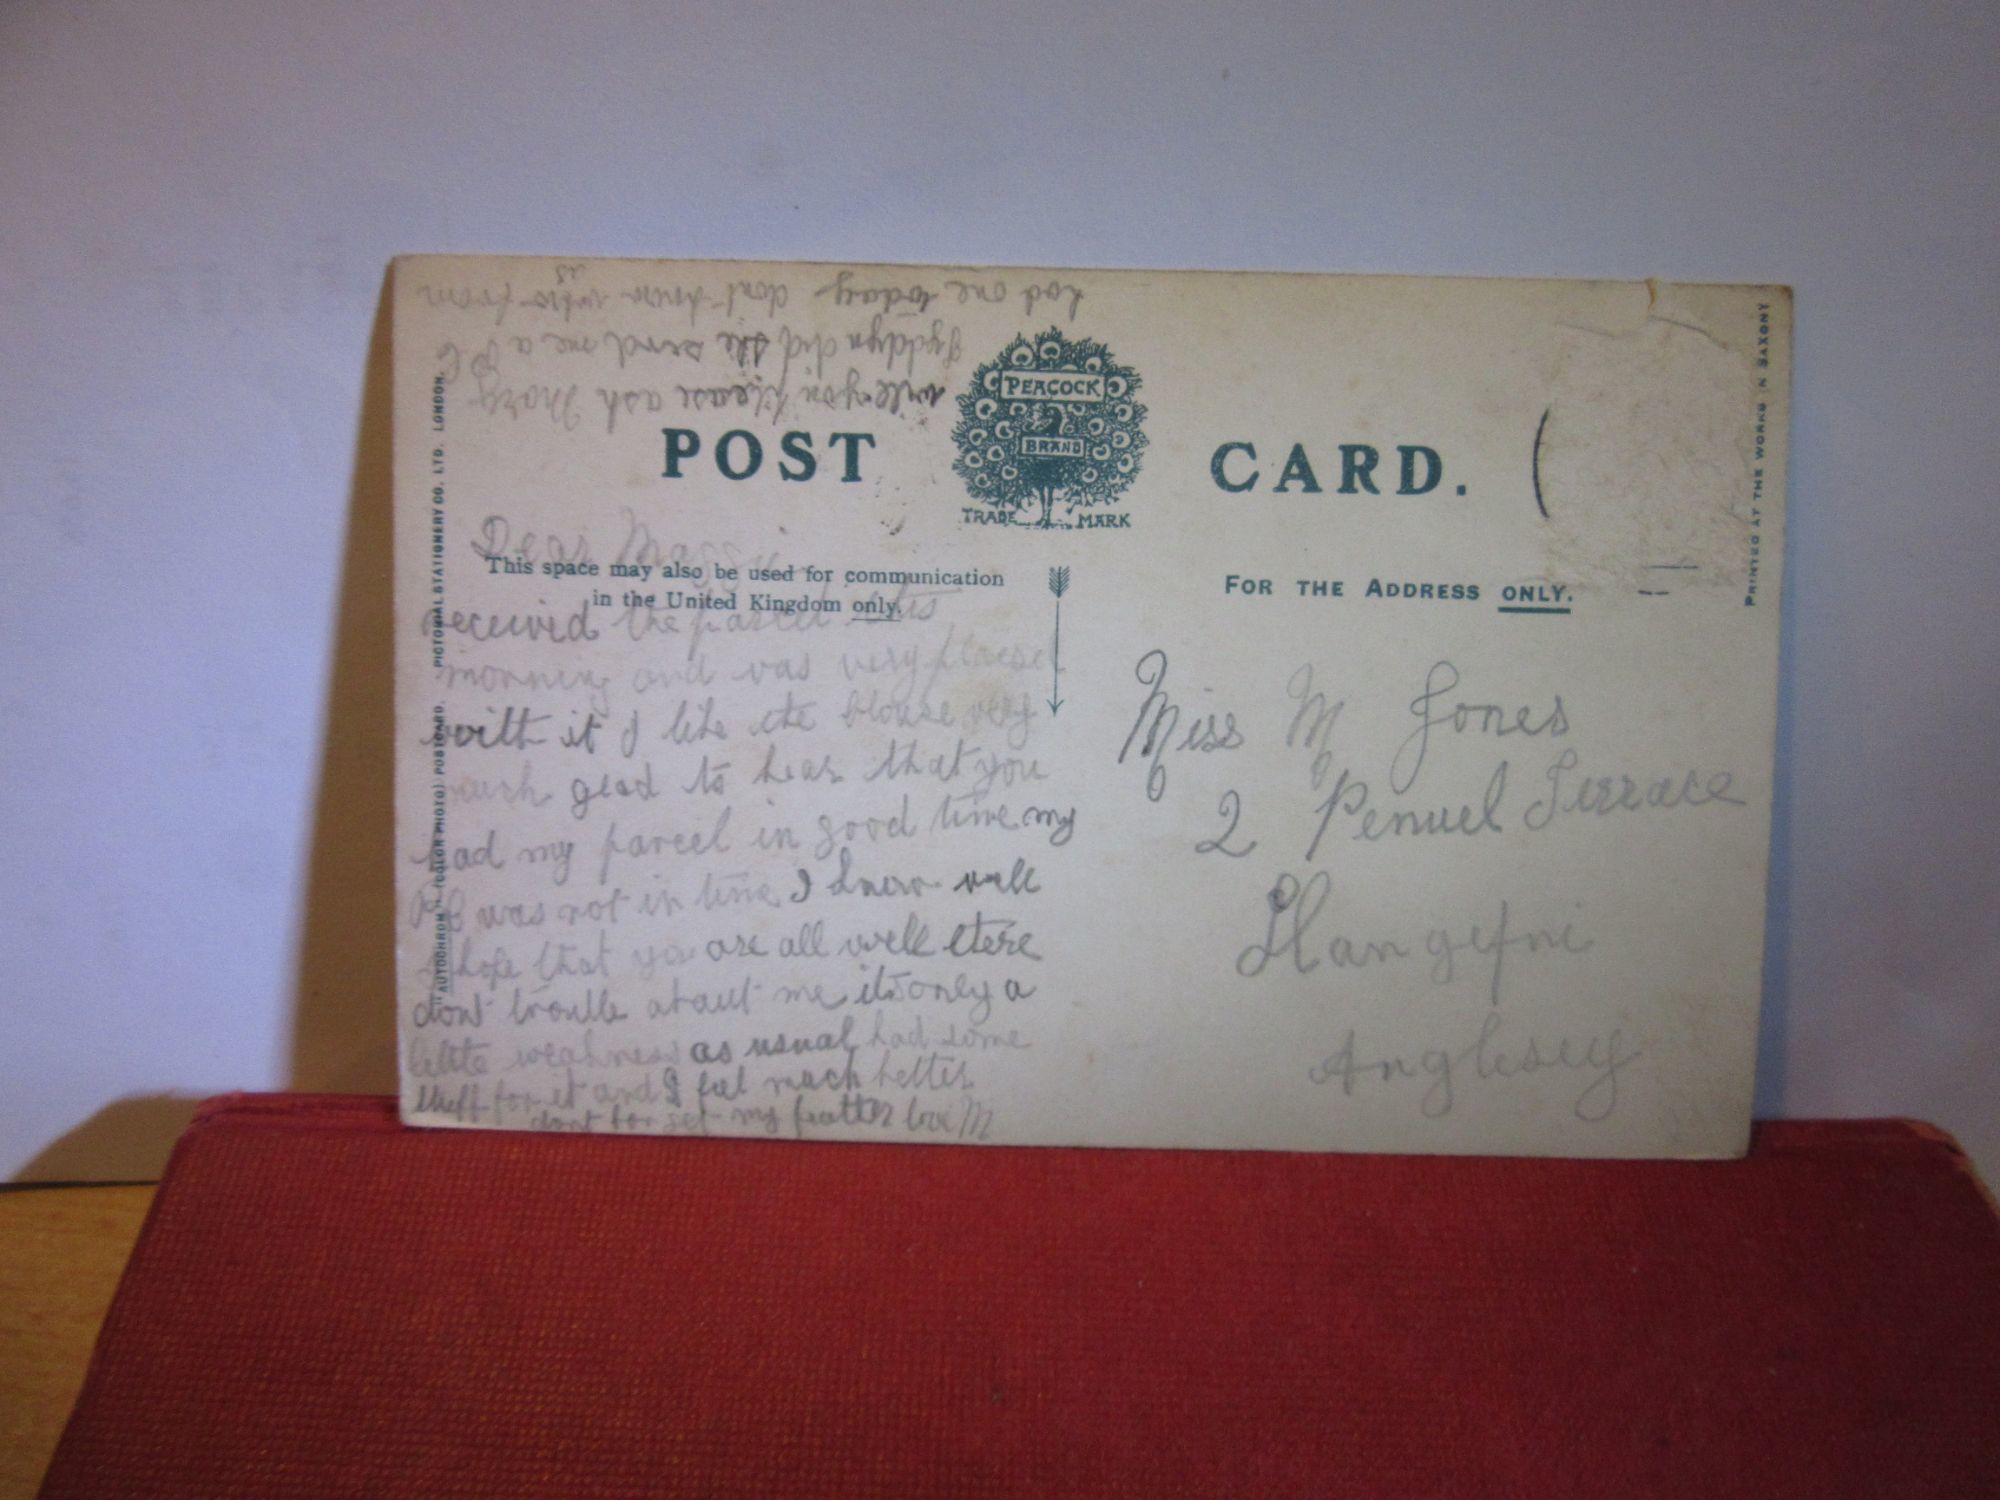 POST CARD.
PEACOCK
BRAND
TRADE MARK
This space may also be used for communication
in the United Kingdom only.
FOR THE ADDRESS ONLY.
"AUTOCHROM" (COLOR PHOTO) POSTCARD. PICTORIAL STATIONERY CO. LTD. LONDON.
PRINTED AT THE WORKS IN SAXONY
Dear Maggie
received the parcel this
morning and was very
with it I like the blouse very
much glad to hear that you
had my parcel in good time my
PC was not in time I know well
I hope that you are all well there
dont trouble about me its only a
weakness as usual had some
stuff for it and I feel much better
dont for get my love M
will you please ask Mary
did she send me a PC
had one today dont know who from
is
Miss M Jones
2 Penuel Terrace
Llangefni
Anglesey